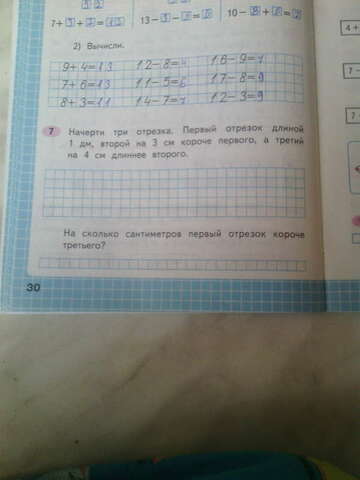 7+3+3=13 13-3-5=5 10-8+6=8
2) Вычисли.
9+4=13 12-8=4 16-9=7
7+6=13 11-5=6 17-8=9
8+3=11 14-7=7 12-3=9
7 Начерти три отрезка. Первый отрезок длиной
1 дм, второй на 3 см короче первого, а третий
на 4 см длиннее второго.
На сколько сантиметров первый отрезок короче
третьего?
30